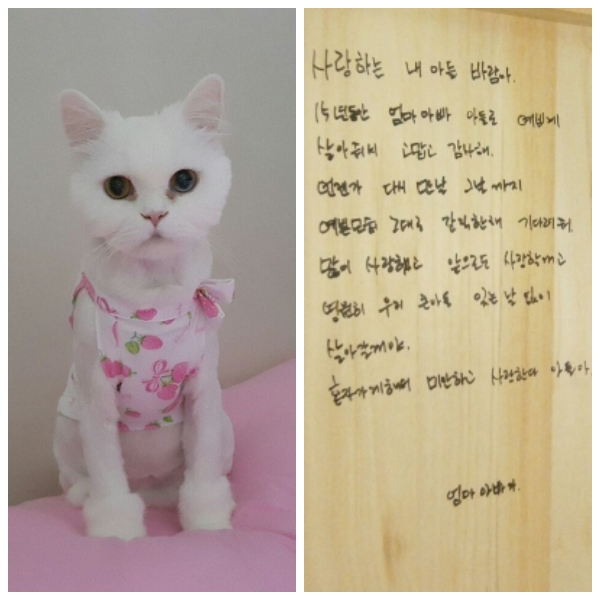 사랑하는 내 아들 바람아.
15년동안 엄마아빠 아들로 예쁘게
살아줘서 고맙고 감사해.
언젠가 다시 만날 그날까지
예쁜모습 그대로 간직한채 기다려줘
많이 사랑했고 앞으로도 사랑할께고
영원히 우리 큰아들 잊는날 없이
살아갈게야.
혼자가게해서 미안하고 사랑한다 아들아
엄마아빠가.